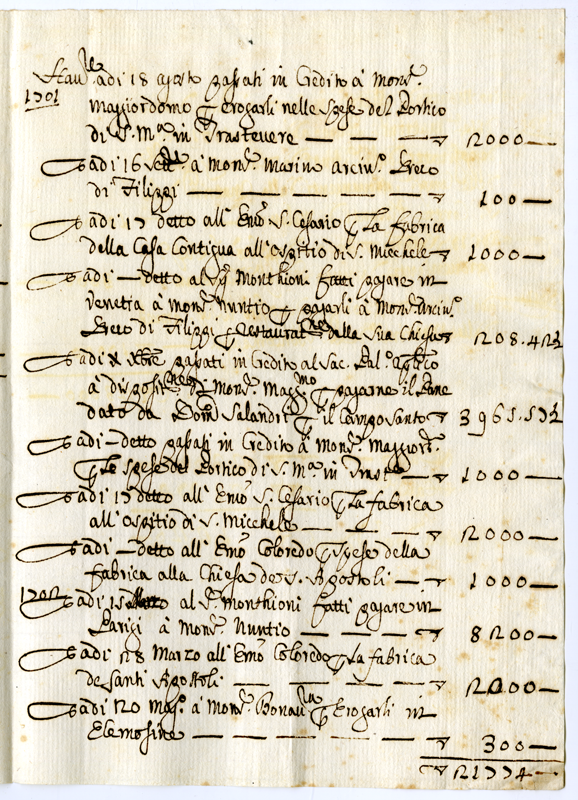 adi 18 agosto passati in Credito à Mons.r
1701
Maggiordomo p erogarli nelle spese del Portico
di S. M.a in Trastevere — — — 2000 —
E adi 16 à Mons.r Marino Arciv.o Greco
di Filippi — — — — — — 100 —
E adi 17 detto all' Em.o S. Cesario p La fabrica
della Casa Contigua all' Ospitio di S. Micchele 1000 —
E adi — detto al S.r Monthioni fatti pagare in
Venetia à mons.r Nuntio p pagarli à Mons.r Arciv.o
Greco di Filippi p della sua Chiesa 208.42½
E adi passati in Credito al Sac. Pal. Ap.lico
à disposit.ne di Mons.r Mag.mo p pagarne il Pane
dato da Dom.o Salandri p il Campo Santo 3965.53½
E adi — detto passati in Credito à Mons.r Maggior.
p Le spese del Portico di S. M.a in Trast.e — 1000 —
E adi 17 detto all' Em.o S. Cesario p La fabrica
all' Ospitio di S. Micchele — — — 2000 —
E adi — detto all' Em.o Coloredo p spese della
fabrica alla Chiesa de S. Apostoli — 1000 —
1702
E adi 15 al S.r Monthioni fatti pagare in
Parigi à Mons.r Nuntio — — — — 8200 —
E adi 28 Marzo all' Em.o Coloredo p La fabrica
de Santi Apostoli — — — — —
E adi 20 Mag.o à Mons.r Bonav.ra p Erogarli in
Elemosine — — — — — — 300 —
21774 —